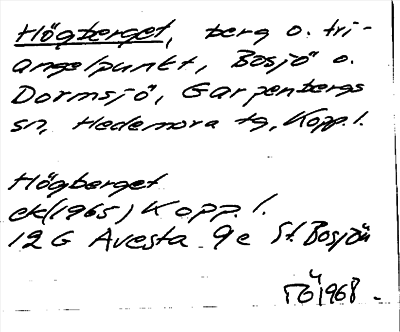 Högberget, berg o. tri-
angelpunkt, Bosjö o.
Dormsjö, Garpenbergs
sn, Hedemora tg, Kopp. l.
Högberget
ek(1965) Kopp. l.
12 G Avesta 9e St. Bosjön
RÖ 1968